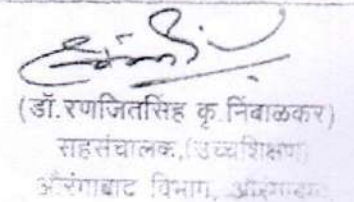 (डॉ.रणजितसिंह कृ.निंबाळकर)
सहसंचालक,(उच्चशिक्षण)
औरंगाबाद विभाग, औरंगाबाद